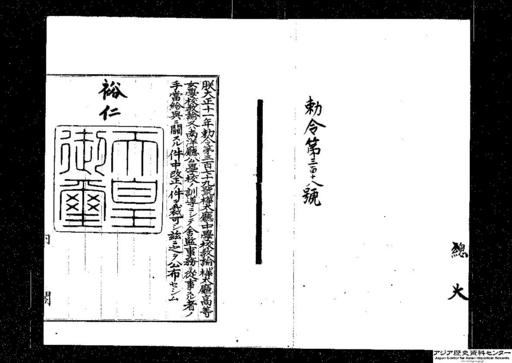 勅令第三百十八號
總火
朕大正十一年勅令第三百七十九號樺太廳中學校教諭樺太廳高等
女學校教諭又ハ南洋廳公學校ノ訓導ニシテ舍監事務ニ從事スル者ノ
手當給與ニ關スル件中改正ノ件ヲ裁可シ茲ニ之ヲ公布セシム
裕仁
天皇御璽
内閣
アジア歴史資料センター
Japan Center for Asian Historical Records